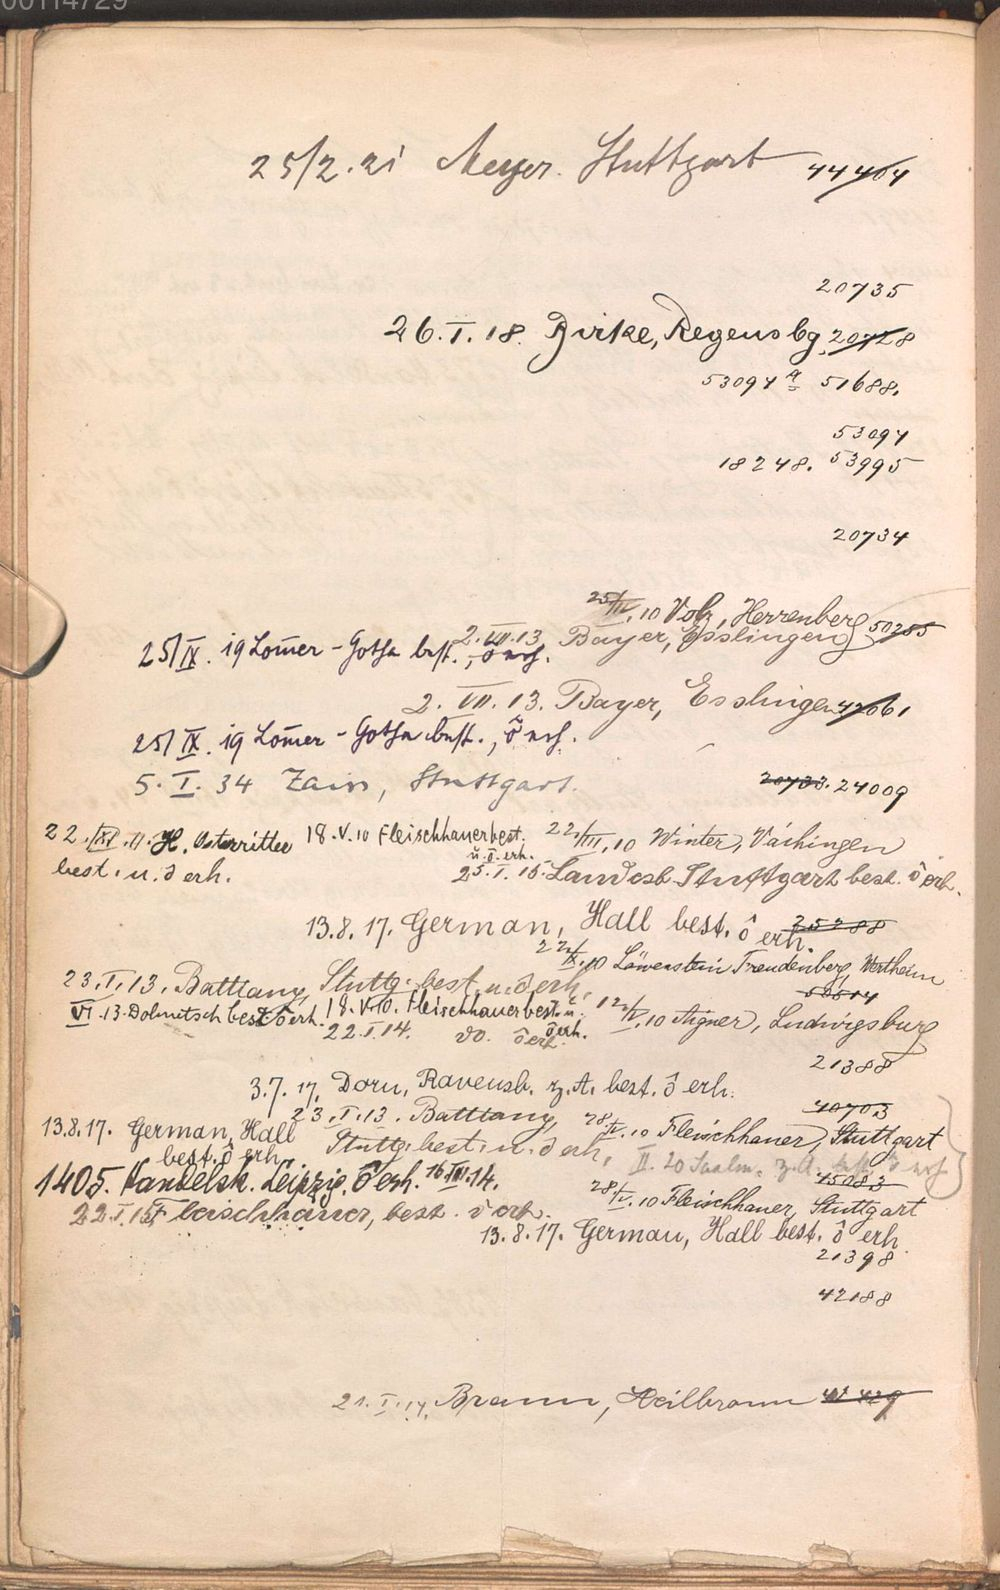 00114729
25/2.21 Meyer. Stuttgart 44404
20735
26.I.18. Birke, Regensbg 20728
53094 a 51688.
53094
18248. 53995
20734
25/III.10 Volz, Herrenberg 50255
2.VII.13. Bayer, Esslingen
25/IX.19 Lomer - Gotha best., ô erh.
2. VII.13. Bayer, Esslingen 47061
25/IX.19 Lomer - Gotha best., ô erh.
5. I. 34 Zaiss, Stuttgart. 20733. 24009
22./XI.11. H. Osterritter 18.V.10 Fleischhauer best. 22/III.10 Winter, Vaihingen
u. ô. erh.
best. u. ô erh. 25.I.15. Landesb. Stuttgart best. ô erh.
13.8.17. German, Hall best. ô erh. 25288
22/IX.10 Löwenstein Freudenberg, Wertheim
23.I.13. Battlang, Stuttg. best. u. ô erh. 50514
VI.13. Dolmetsch best ô erh. 18.V.10. Fleischhauer best. u. ô erh. 12/V.10 Aigner, Ludwigsburg
22.I.14. do. ô erh.
21388
3.7.17. Dorn, Ravensb. z.A. best. ô erh.
40703
23.I.13. Battlang, 28/IV.10 Fleischhauer, Stuttgart
13.8.17. German, Hall Stuttg. best. u. ô erh.
best. ô erh. II.20 Saalm. z.A. best. ô erh.
15083
1405. Handelsk. Leipzig. ô erh. 16.III.14. 28/IV.10 Fleischhauer, Stuttgart
22.I.15 Fleischhauer, best. ô erh.
13.8.17. German, Hall best. ô erh.
21398
42188
21.I.14. Braun, Heilbronn